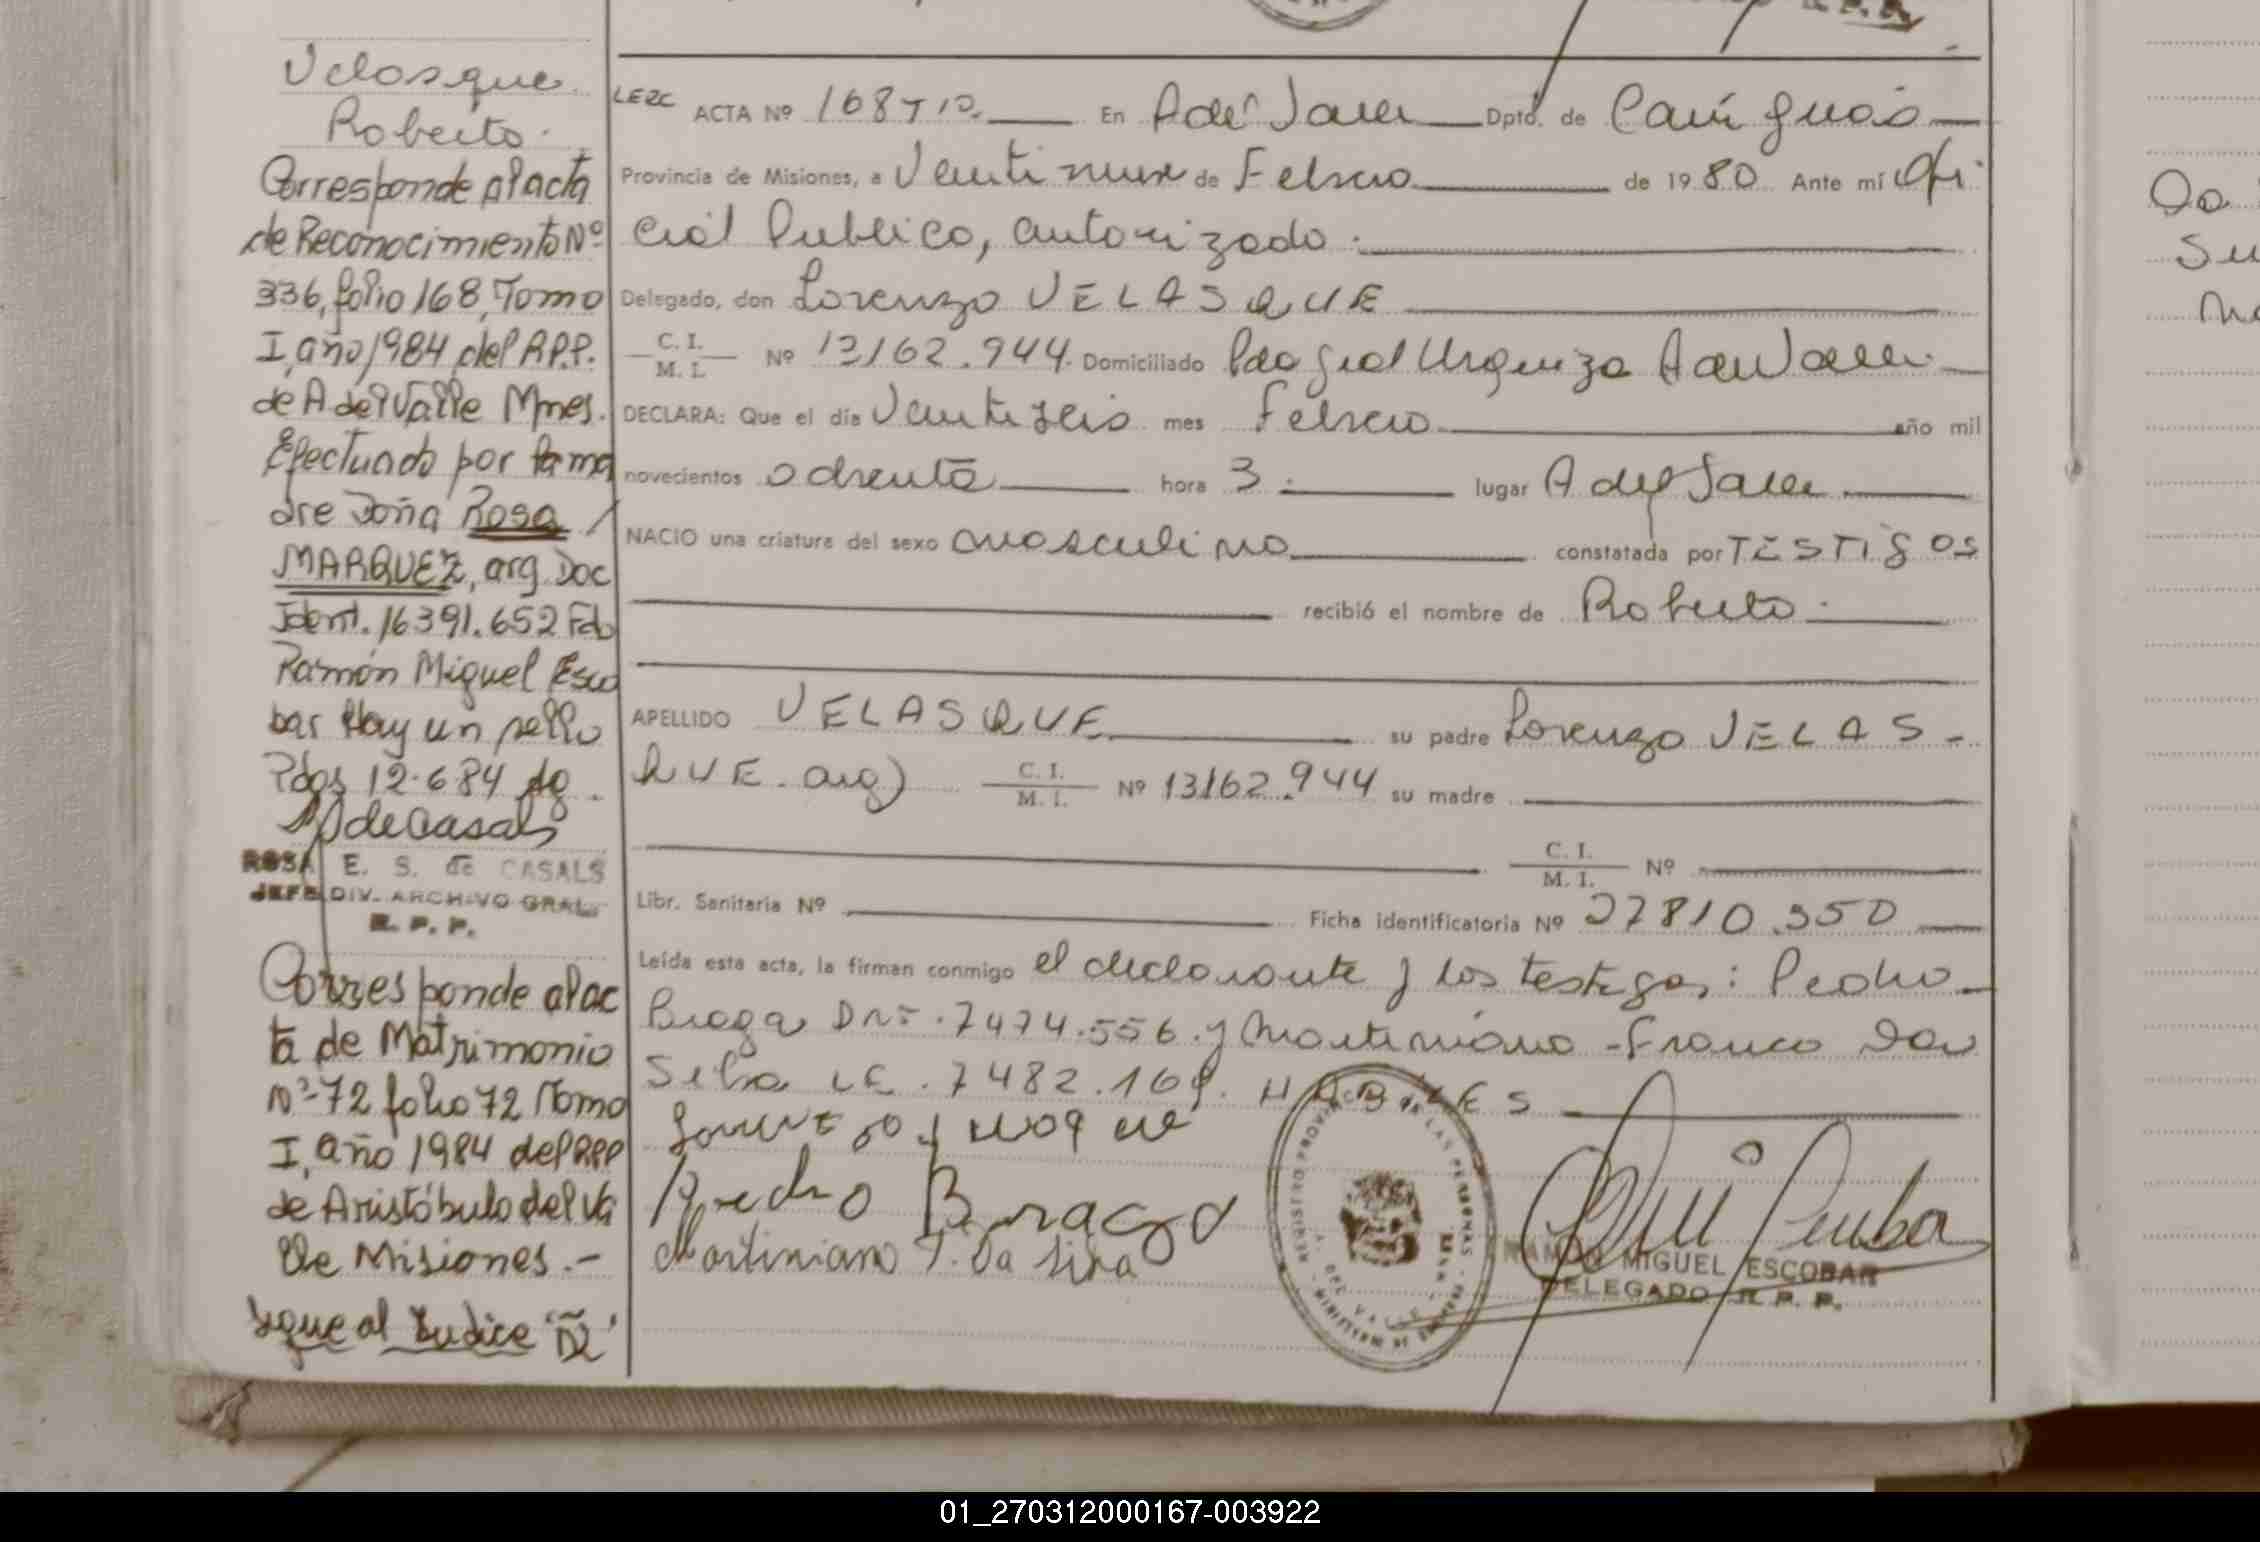 Velasque
Roberto.
Corresponde al acta
de Reconocimiento Nº
336, folio 168, Tomo
I, año 1984 del R.P.P.
de A del Valle Mnes.
Efectuado por la ma
dre Doña Rosa /
MARQUEZ, arg. Doc
Ident. 16391.652 Fdo
Ramón Miguel Esco
bar Hay un sello
Pdas 12.6 84
deCasals
ROSA E. S. de CASALS
JEFE DIV. ARCHIVO GRAL.
R. P. P.
Corresponde al ac
ta de Matrimonio
Nº 72 folio 72 Tomo
I, año 1984 del RPP
de Aristóbulo del Va
lle Misiones.-
Sigue al Indice
LERC ACTA Nº 168 T 1º. En A del Valle Dptd. de Cain guás
Provincia de Misiones, a Veinti nueve de Febrero de 19 80 Ante mí Ofi
cial Publico, autorizado.
Delegado, don Lorenzo VELASQUE
C. I. M. I. Nº 13162.944. Domiciliado Pdo Gral Urquiza A del Valle.
DECLARA: Que el día Veinti seis mes Febrero año mil
novecientos ochenta hora 3. lugar A del Valle
NACIO una criatura del sexo masculino constatada por TESTIGOS
recibió el nombre de Roberto.
APELLIDO VELASQUE su padre Lorenzo VELAS-
QUE. arg) C. I. M. I. Nº 13162.944 su madre
C. I. M. I. Nº
Libr. Sanitaria Nº Ficha identificatoria Nº 27810.350
Leída esta acta, la firman conmigo el declarante y los testigos: Pedro
Braga DNI .7474.556. y Martiniano - Franco Da
Silva LE. 7482.169. HABILES
Pedro Braga
Martiniano F. Da Silva
REGISTRO PROVINCIAL DE LAS PERSONAS
A. DEL VALLE
RAMON MIGUEL ESCOBAR
DELEGADO R. P. P.
01_270312000167-003922